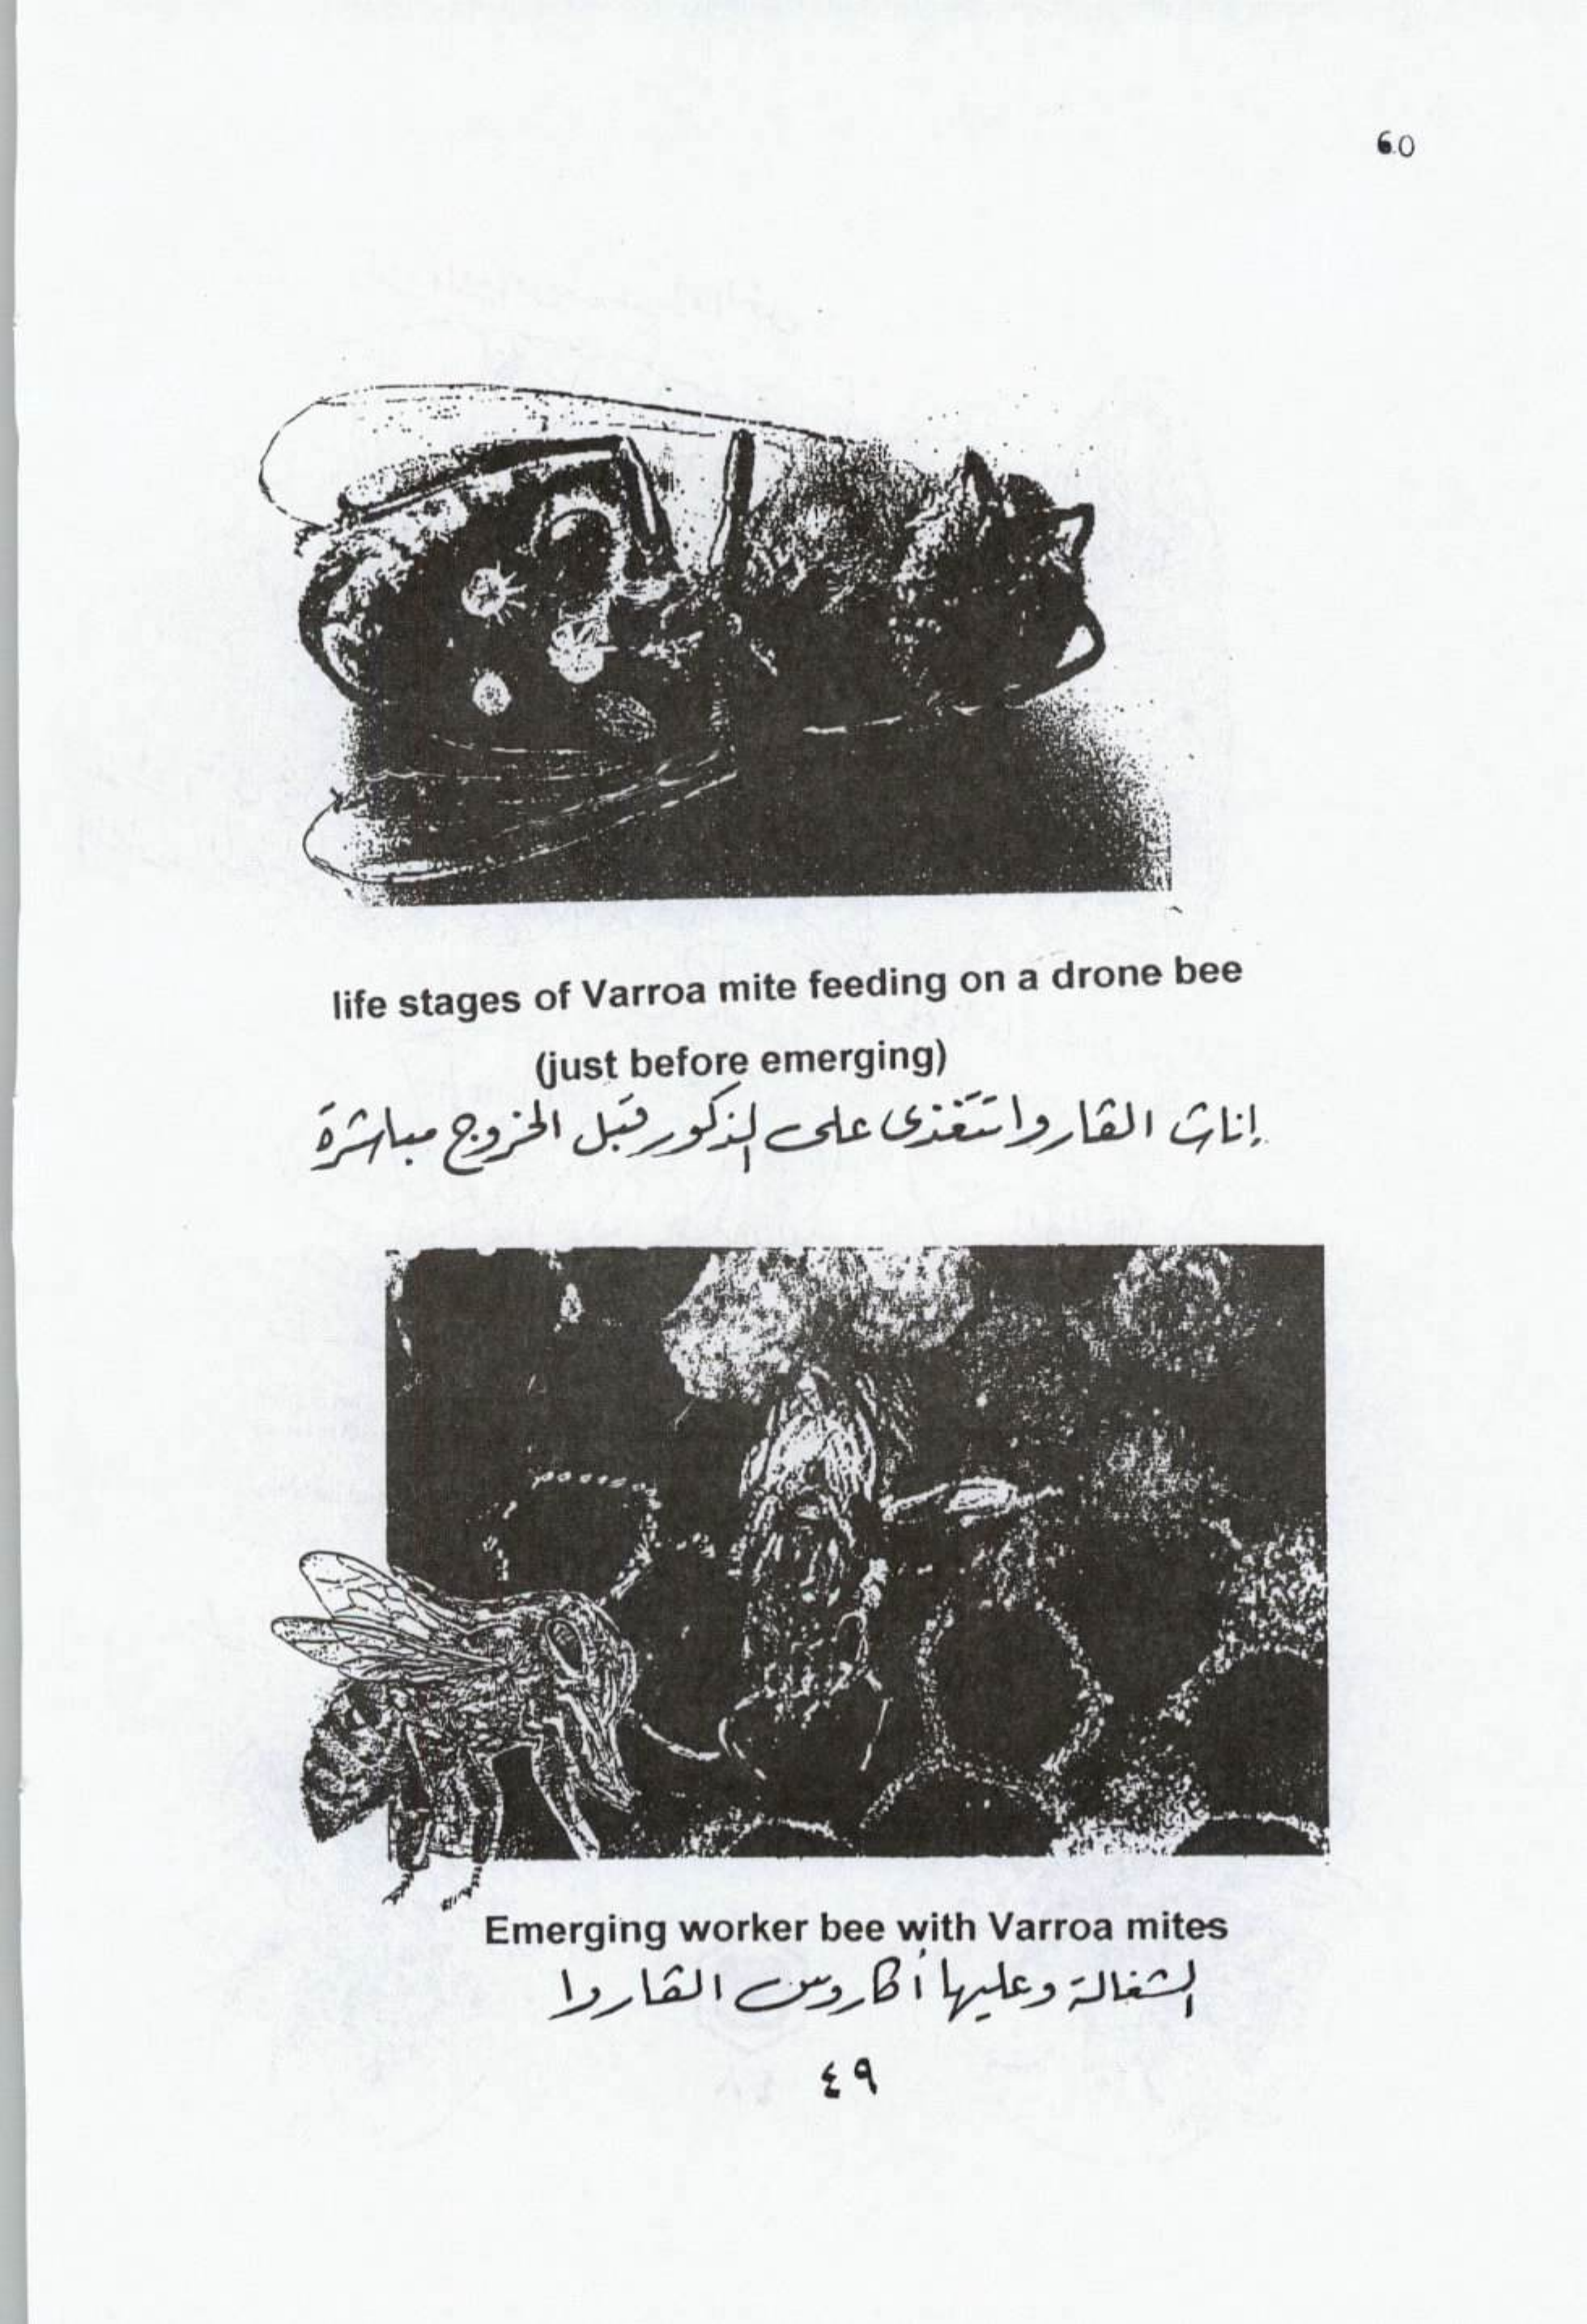 60
life stages of Varroa mite feeding on a drone bee
(just before emerging)
إناث القاروا تتغذى على الذكور قبل الخروج مباشرة
Emerging worker bee with Varroa mites
الشغالة وعليها أكاروس القاروا
٤٩